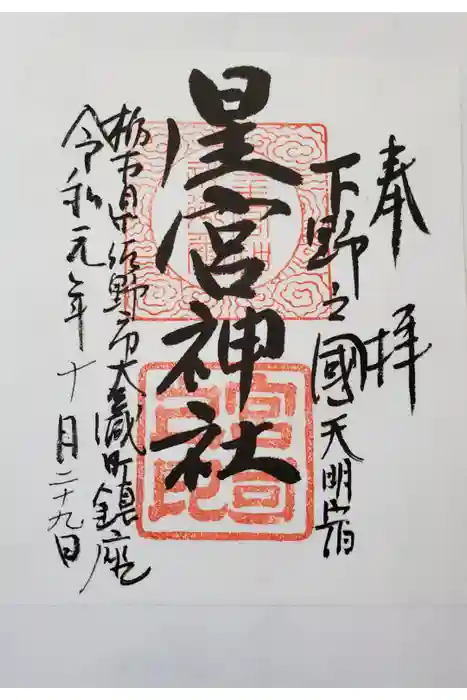 奉拝
下野之國天明宿
星宮神社
栃木県佐野市大蔵町鎮座
令和元年十月二十九日
宮司之印